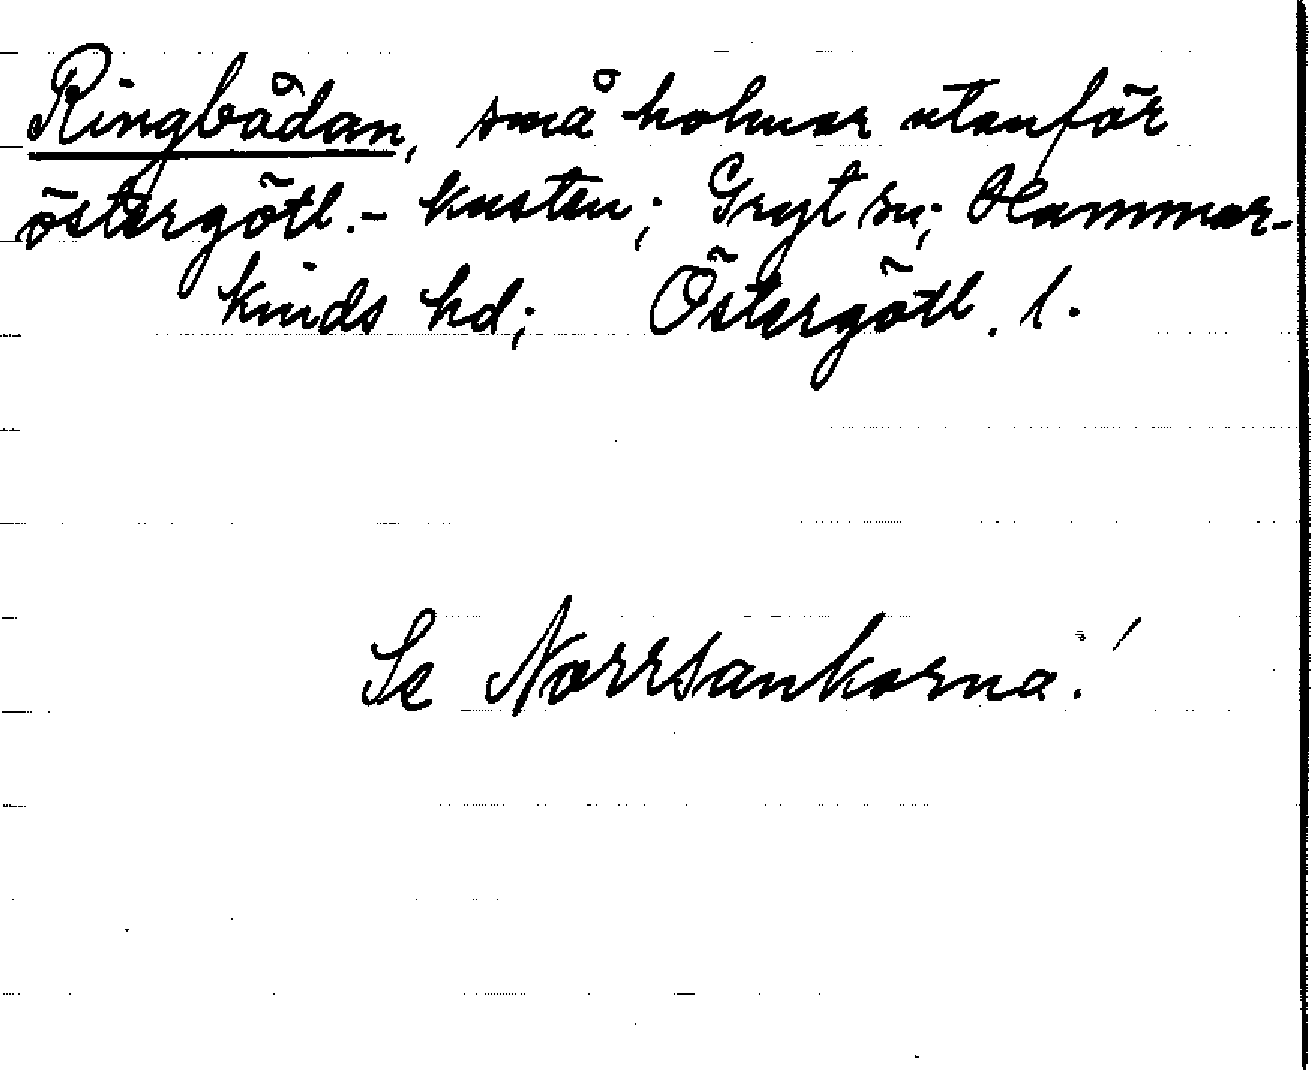 Ringbådan, små holmar utanför
östergötl.- kusten; Gryt sn; Hammar-
kinds hd; Östergötl. l.
Se Norrsankorna!